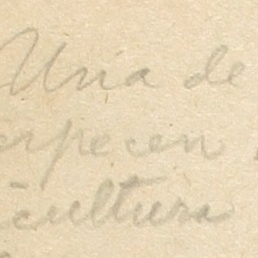 Una de
erpecen
cultura